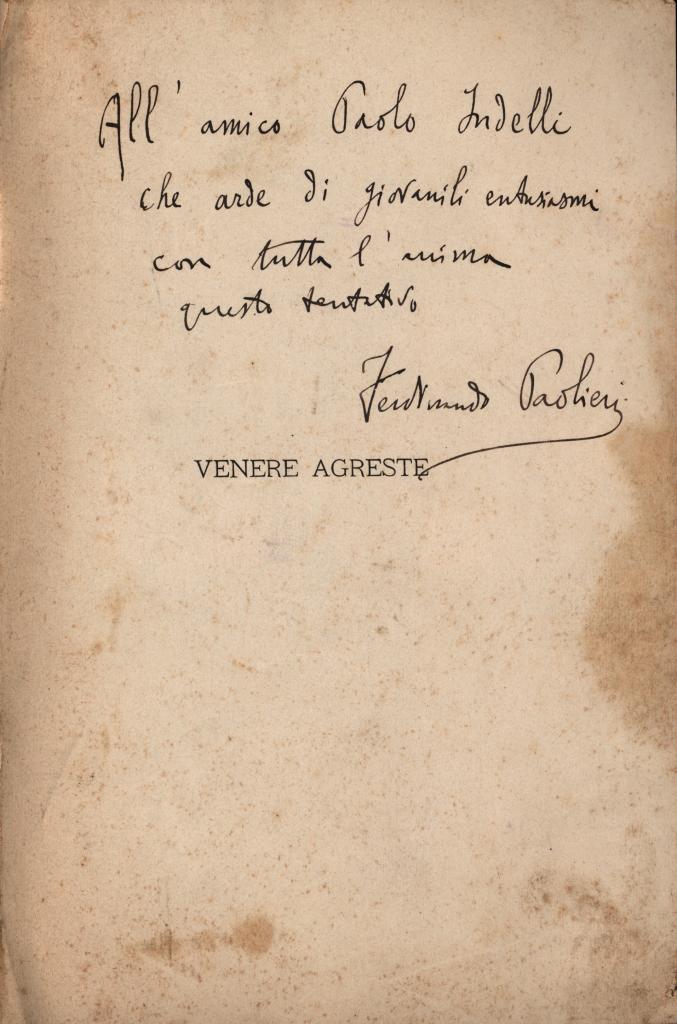 All' amico Paolo Indelli
che arde di giovanili entusiasmi
con tutta l'anima
questo tentativo
Ferdinando Paolieri
VENERE AGRESTE